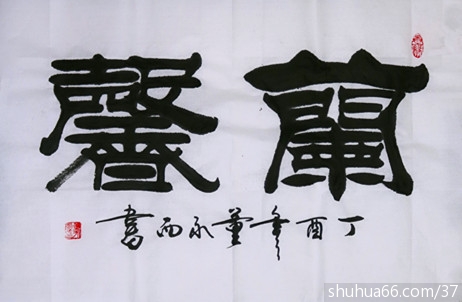 蘭馨
丁酉年董永西書
shuhua66.com/37